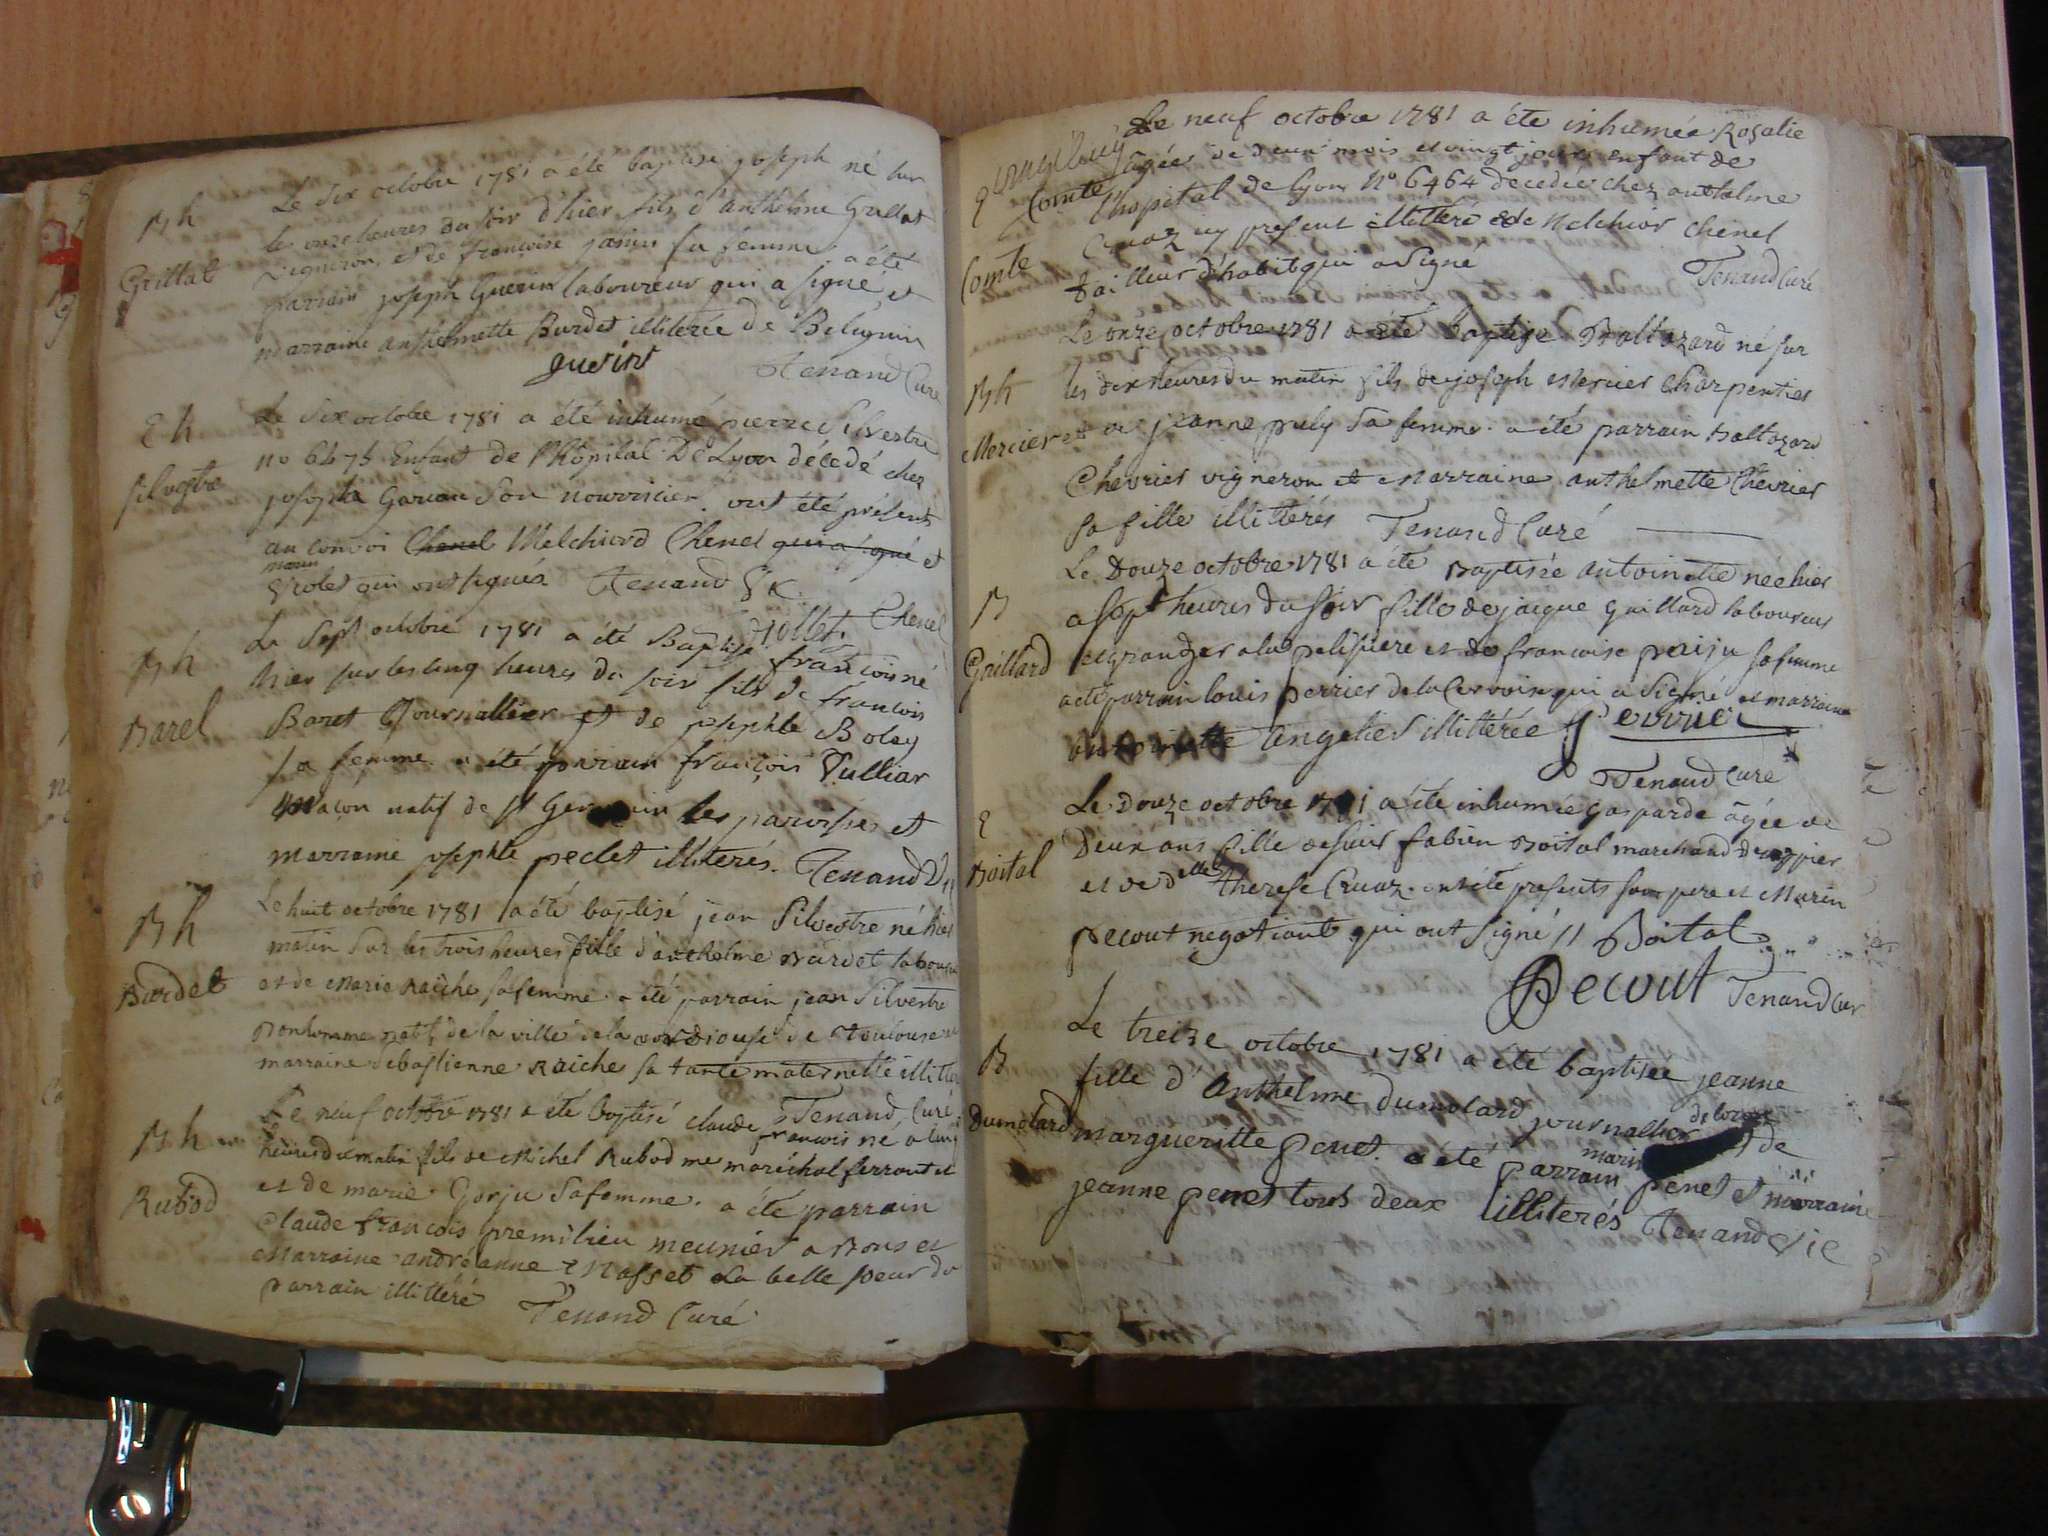 Bh
Grillat
Le six octobre 1781 a été baptisé joseph né sur
les onze heures du soir d'hier fils d'anthelme Grillat
vigneron, et de françoise sa femme. a été
parrain joseph Guerin laboureur qui a signé et
marraine anthelmette Burdet illiterée de Beligniu
guerin Tenand Curé
E h
silvestre
Le six octobre 1781 a été inhumé pierre silvestre
no 6475 Enfant de l'hôpital De Lyon décédé chez
joseph son nourricier. ont été présents
au convoi Chenel Melchiord Chenel qui a signé et
marin
qui ont signés Tenand
Chenel
Bh
Barel
Le sept octobre 1781 a été Baptisé françois né
hier sur les cinq heures du soir fils de françois
Baret Journallier et de josephte Boley
sa femme a été parrain françois Vulliar
Maçon natif de st Germain les paroisses et
marraine josephte peclet illiterés. Tenand
Bh
Burdet
Le huit octobre 1781 a été baptisé jean Silvestre né hier
matin sur les trois heures fille d'anthelme Burdet laboureur
et de Marie Raiche sa femme. a été parrain jean Silvestre
Bonhomme natif de la ville de la de Toulouse
marraine sebastienne Raiche sa tante maternelle
Tenand Curé
Bh
Rubod
Le neuf octobre 1781 a été baptisé claude
francois né a cinq
heures du matin fils de Michel Rubod me maréchal ferrant
et de marie Gorju sa femme. a été parrain
Claude françois premilieu meunier a Bons et
Marraine andréanne Masset la belle soeur du
parrain illittéré Tenand Curé
Comte
Comte
Le neuf octobre 1781 a été inhumée Rosalie
âgée de deux mois et vingt jours enfant de
l'hopital de Lyon No 6464 decedée chez anthelme
Cruaz present illittéré et de Melchior Chenel
tailleur d'habit qui a signé Tenand Curé
Bh
Mercier
Le onze octobre 1781 a été baptisé Baltazard né sur
les dix heures du matin fils de joseph Mercier charpentier
et de jeanne puly sa femme. a été parrain Baltazard
Chevrier vigneron et Marraine anthelmette Chevrier
sa fille illittérés Tenand Curé
B
Gaillard
Le Douze octobre 1781 a été Baptisée antoinette née hier
a sept heures du soir fille de jacque Gaillard laboureur
et granger a la pelissiere et de francoise sa femme
a été parrain louis perrier de la qui a signé et marraine
antoinette angelier illittérée Perrier
Tenand Curé
E
Boital
Le Douze octobre 1781 a été inhumée gasparde âgée de
Deux ans fille de sieur fabien Boital marchand
et de delle therese Cruaz. ont été présents son pere et Marin
pecout negotiant qui ont signé // Boital
Pecout Tenand Cur
B
Dumolard
Le treize octobre 1781 a été baptisée jeanne
fille d'Anthelme Dumolard journallier et de
margueritte penet. a été parrain marin penet et marraine
jeanne penet tous deux illiterés Tenand